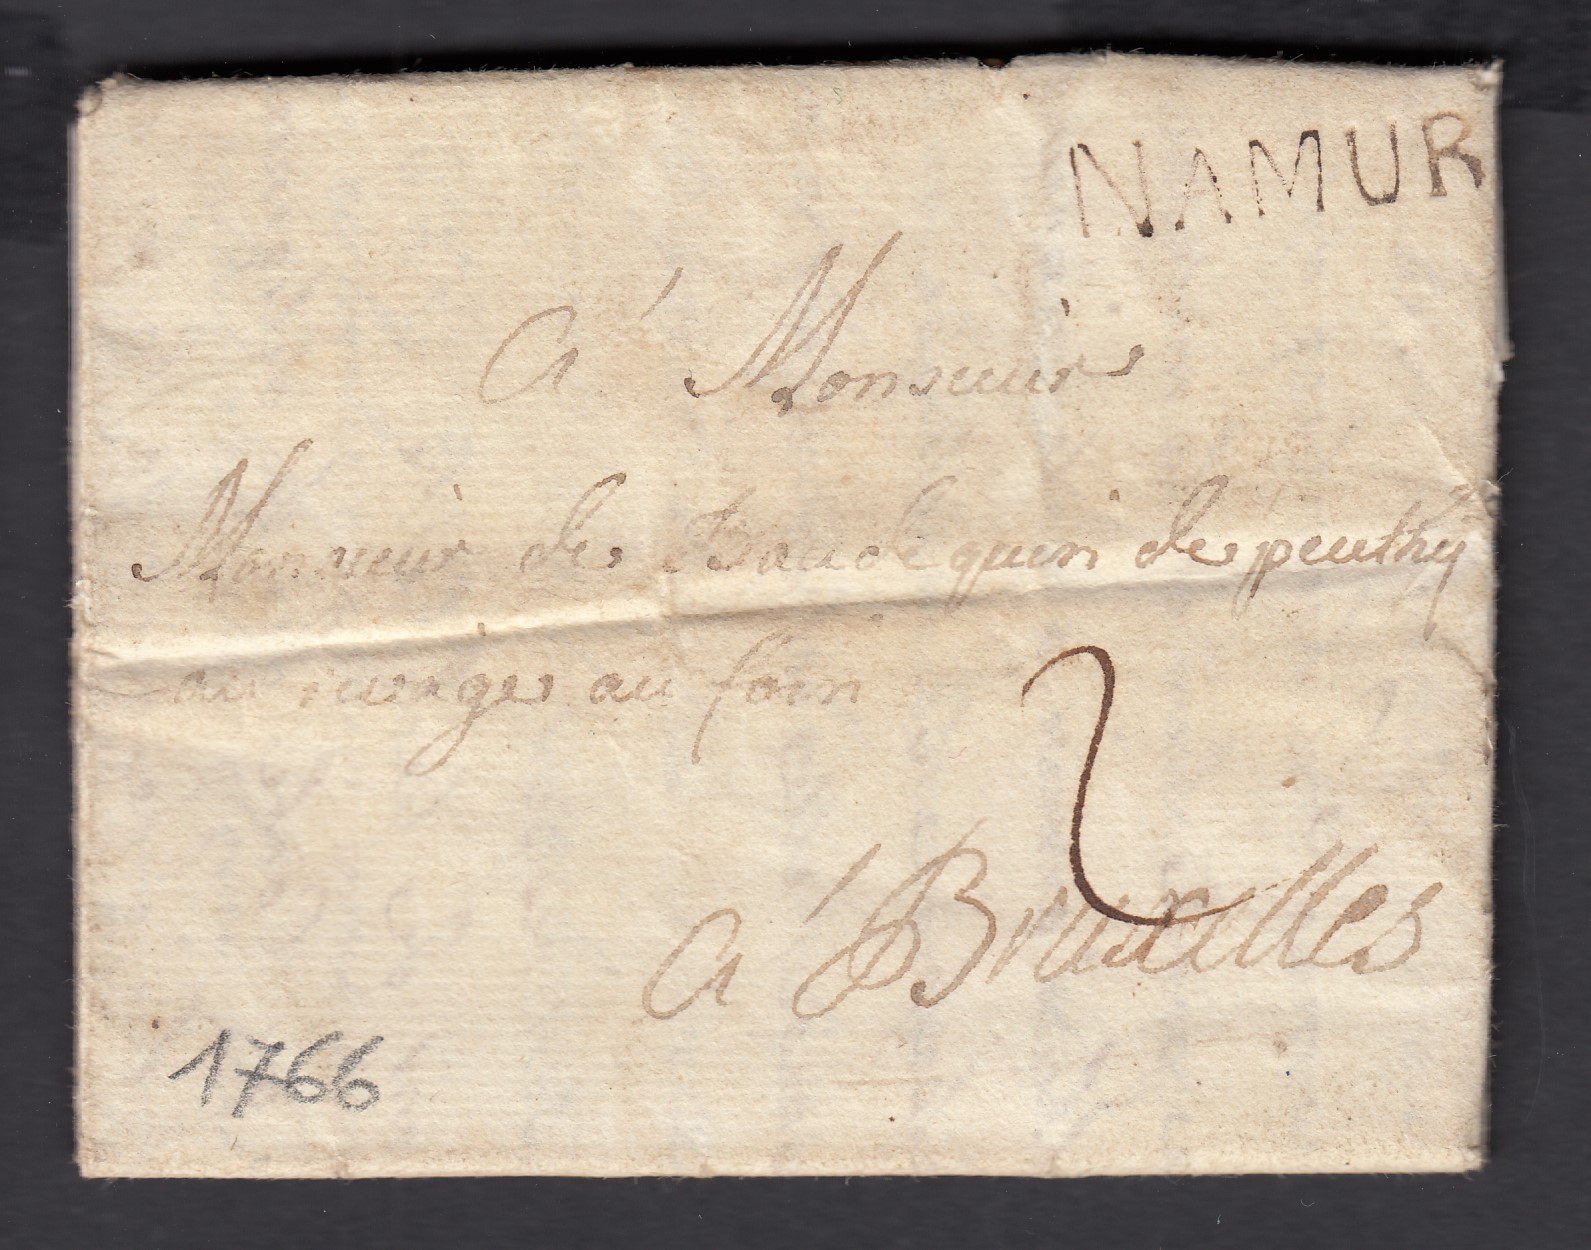 NAMUR
á Monsieur
Monsieur de Baudequin de peuthÿ
au au foin
2
á Bruxelles
1766